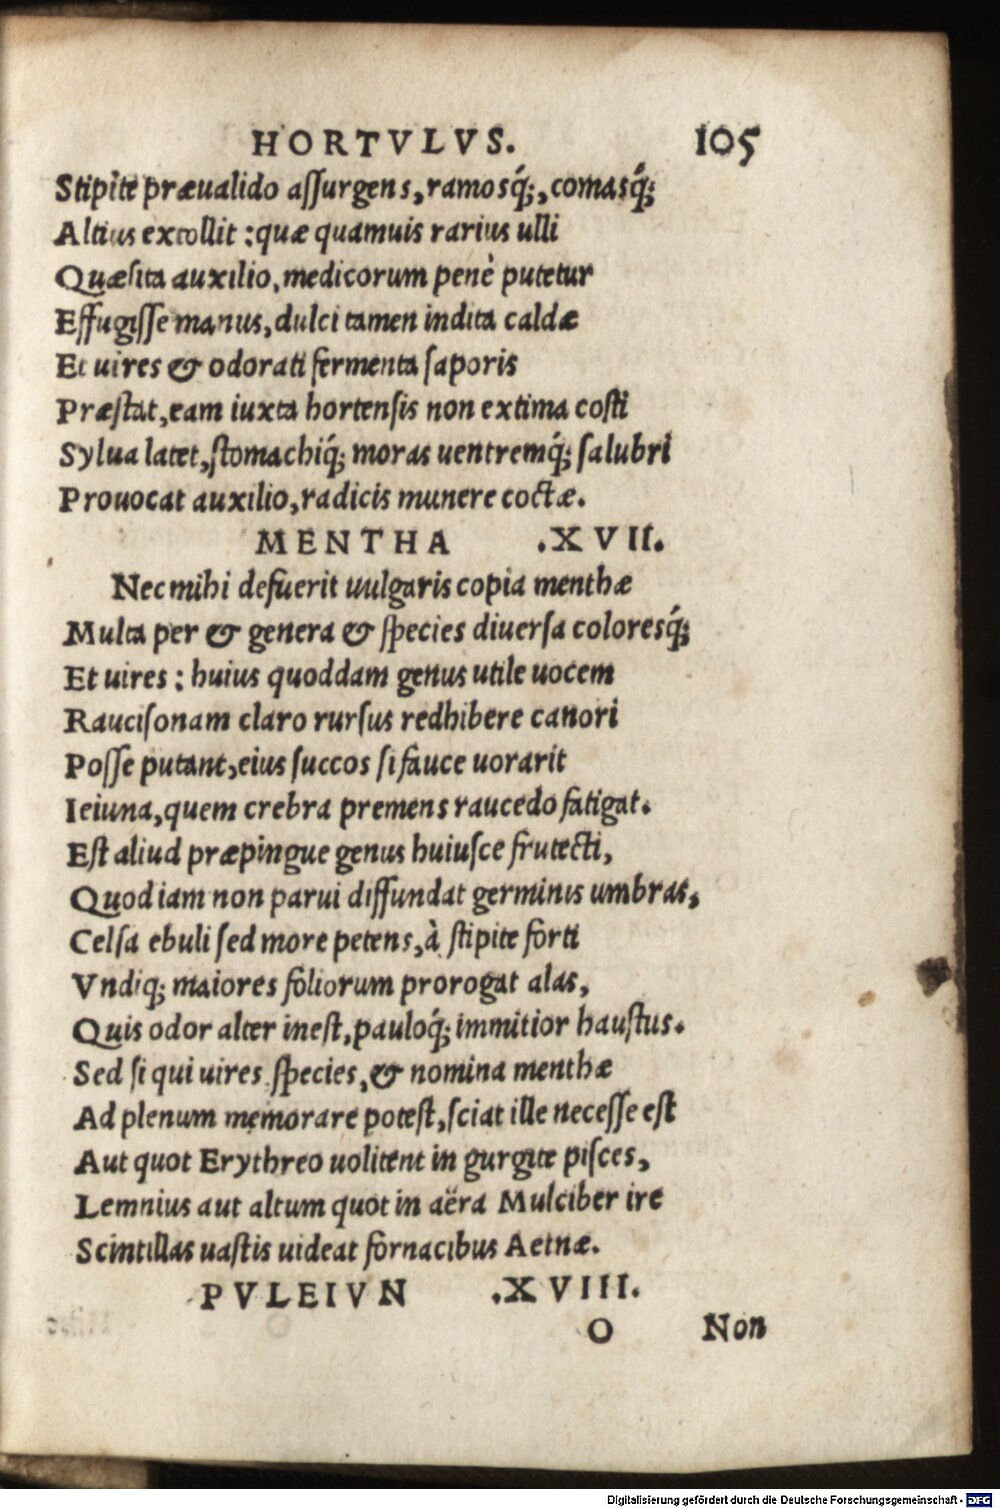 HORTVLVS. 105
Stipite præualido aſſurgens, ramosq́;, comasq́;
Altius extollit: quæ quamuis rarius ulli
Quæſita auxilio, medicorum penè putetur
Effugiſſe manus, dulci tamen indita caldæ
Et uires & odorati fermenta ſaporis
Præſtat, eam iuxta hortenſis non extima coſti
Sylua latet, ſtomachiq́; moras uentremq́; ſalubri
Prouocat auxilio, radicis munere coctæ.
MENTHA .XVII.
Nec mihi defuerit uulgaris copia menthæ
Multa per & genera & ſpecies diuerſa coloresq́;
Et uires: huius quoddam genus utile uocem
Rauciſonam claro rurſus redhibere canori
Poſſe putant, eius ſuccos ſi fauce uorarit
Ieiuna, quem crebra premens raucedo fatigat.
Eſt aliud præpingue genus huiuſce frutecti,
Quod iam non parui diffundat germinis umbras,
Celſa ebuli ſed more petens, à ſtipite forti
Vndiq; maiores foliorum prorogat alas,
Quis odor alter ineſt, pauloq́; immitior hauſtus.
Sed ſi qui uires ſpecies, & nomina menthæ
Ad plenum memorare poteſt, ſciat ille neceſſe eſt
Aut quot Erythreo uolitent in gurgite piſces,
Lemnius aut altum quot in aëra Mulciber ire
Scintillas uaſtis uideat fornacibus Aetnæ.
PVLEIVN .XVIII.
O Non
Digitalisierung gefördert durch die Deutsche Forschungsgemeinschaft - DFG